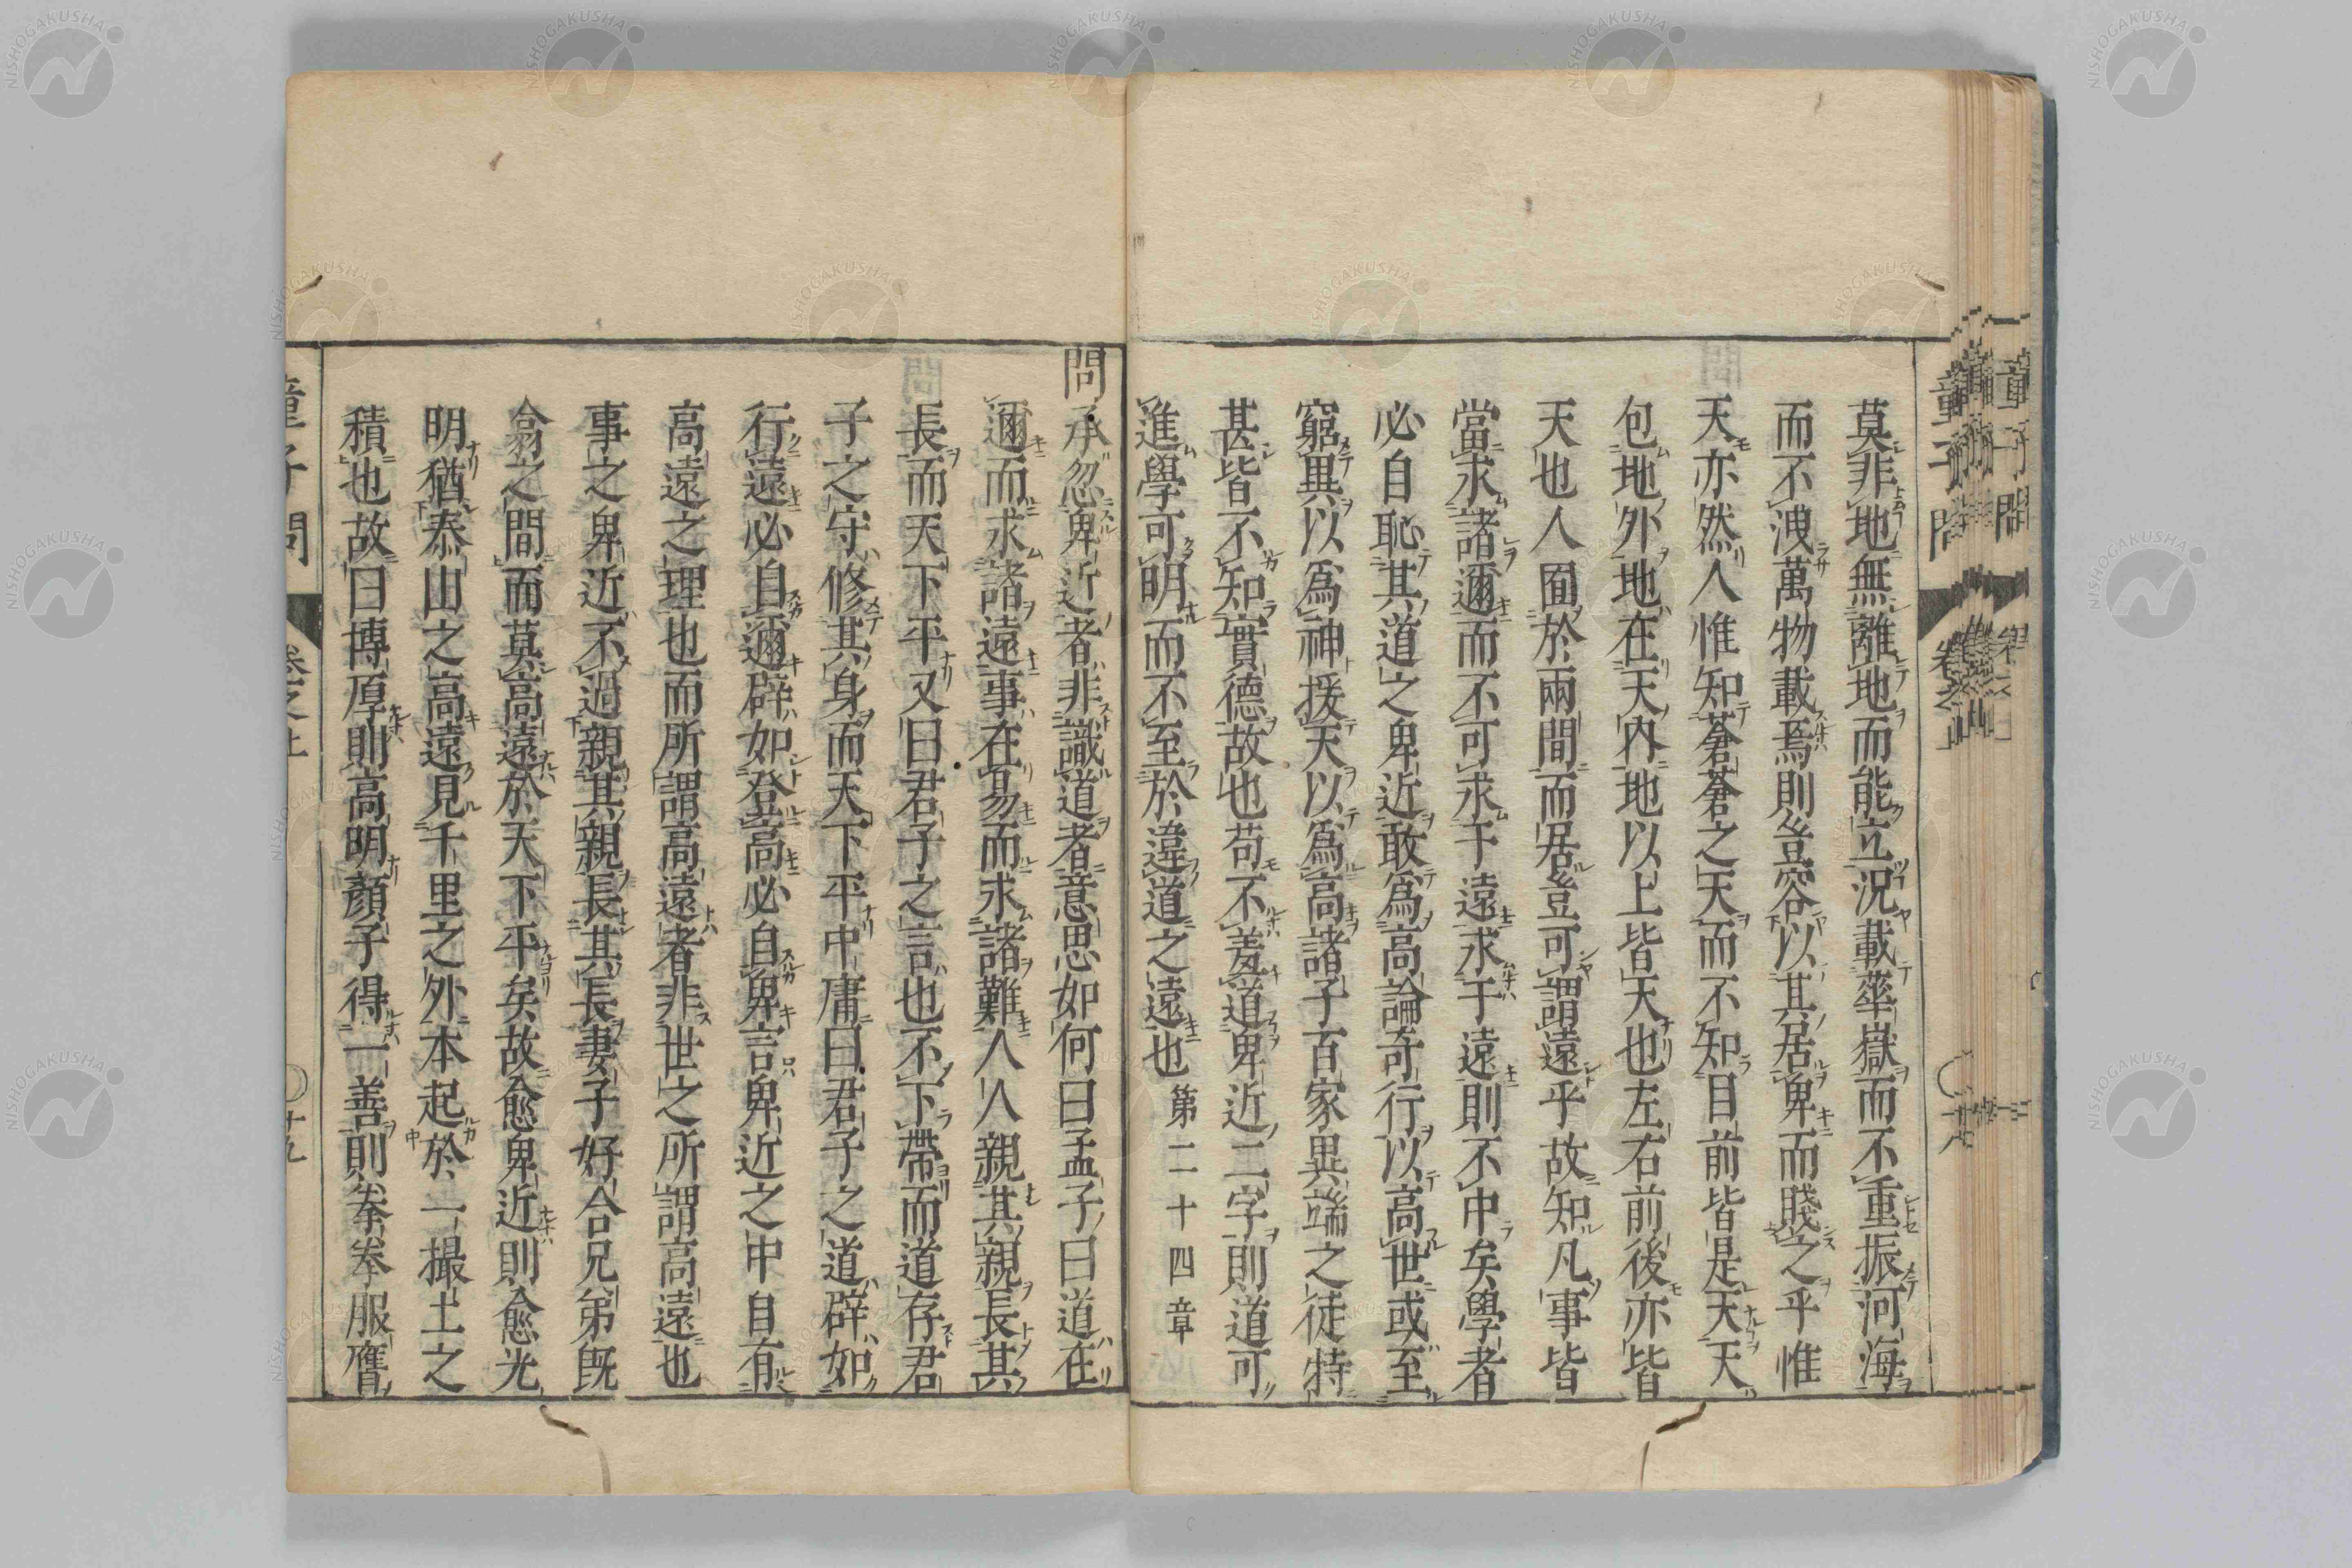 莫非地無離地而能立況載華嶽而不重振河海
而不洩萬物載焉則豈容以其居卑而賤之乎惟
天亦然人惟知蒼蒼之天而不知目前皆是天天
包地外地在天內地以上皆天也左右前後亦皆
天也人囿於兩間而居豈可謂遠乎故知凡事皆
當求諸邇而不可求于遠求于遠則不中矣學者
必自恥其道之卑近敢爲高論奇行以高世或至
窮異以爲神援天以爲高諸子百家異端之徒特
甚皆不知實德故也苟不羞道卑近二字則道可
進學可明而不至於違道之遠也第二十四章
問承忽卑近者非識道者意思如何曰孟子曰道在
邇而求諸遠事在易而求諸難人人親其親長其
長而天下平又曰君子之言也不下帶而道存君
子之守修其身而天下平中庸曰君子之道辟如
行遠必自邇辟如登高必自卑言卑近之中自有
高遠之理也而所謂高遠者非世之所謂高遠也
事之卑近不過親其親長其長妻子好合兄弟既
翕之間而莫高遠於天下平矣故愈卑近則愈光
明猶泰山之高遠見千里之外本起於一撮土之
積也故曰博厚則高明顏子得一善則拳拳服膺
童子問 卷之上